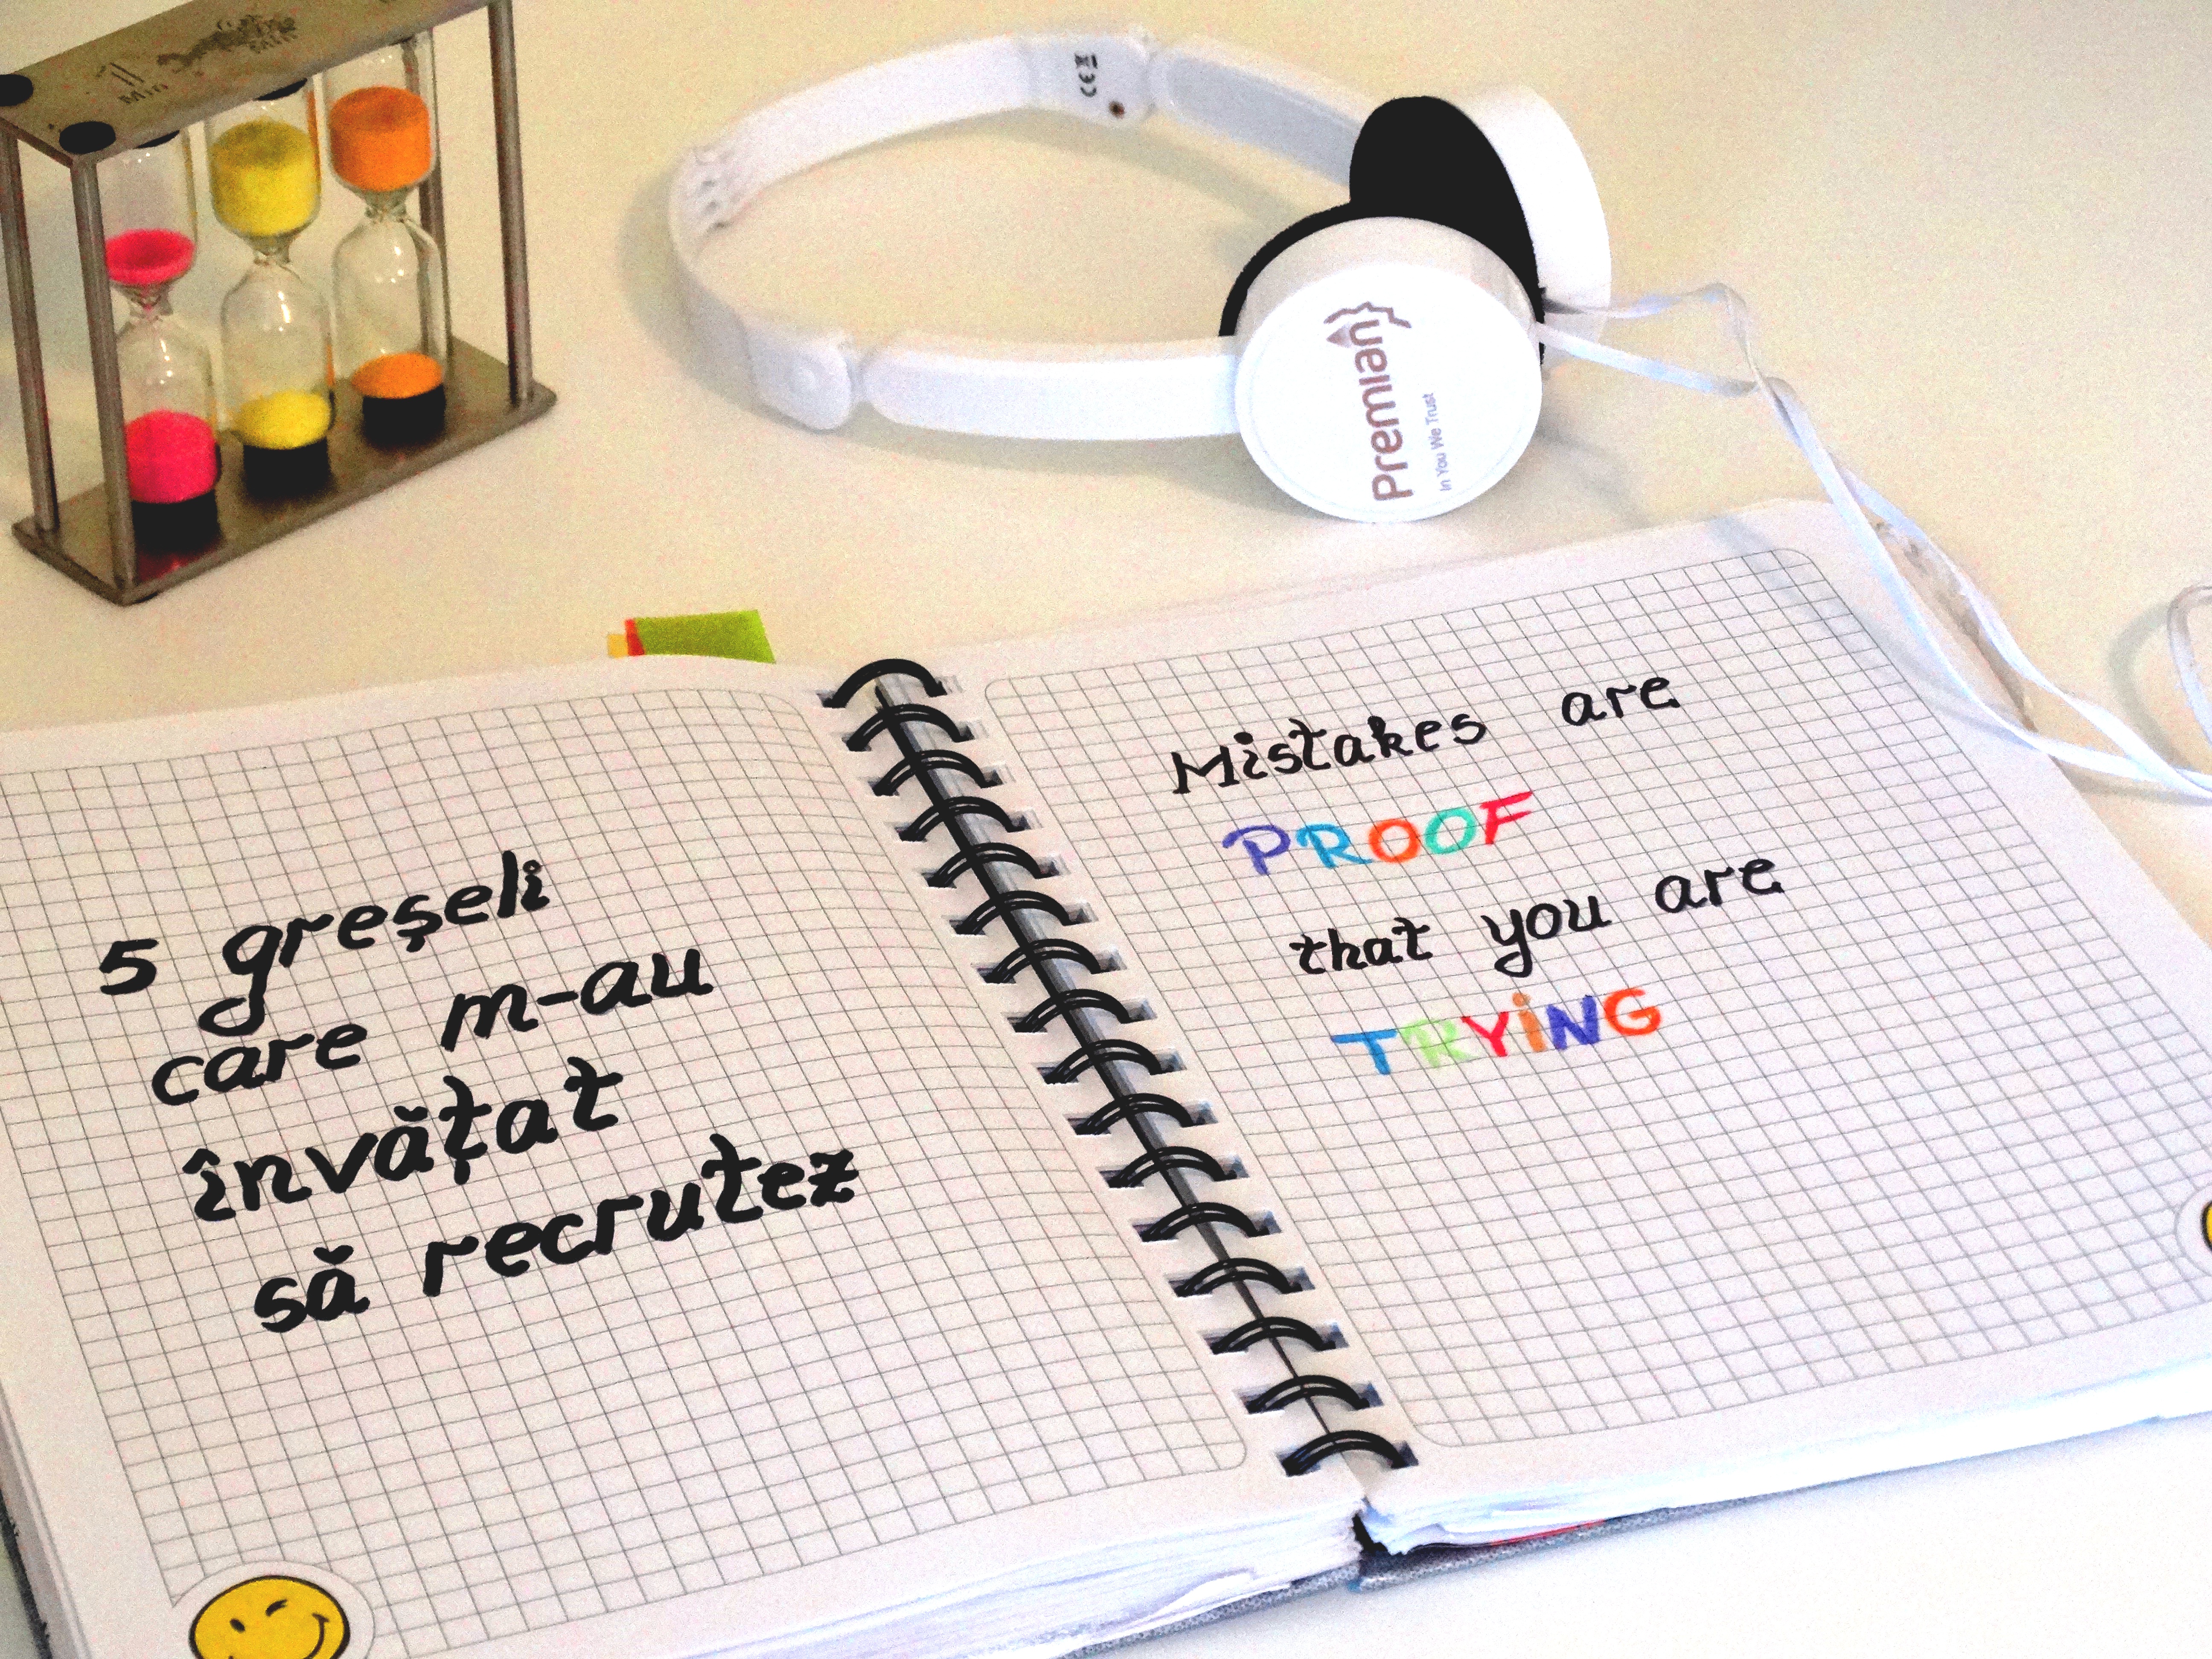 1
Min
Premian
In You We Trust
CE
5 greșeli
care m-au
învățat
să recrutez
Mistakes are
PROOF
that you are
TRYiNG